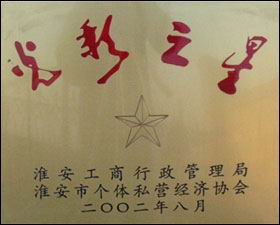 光彩之星
淮安工商行政管理局
淮安市个体私营经济协会
二〇〇二年八月